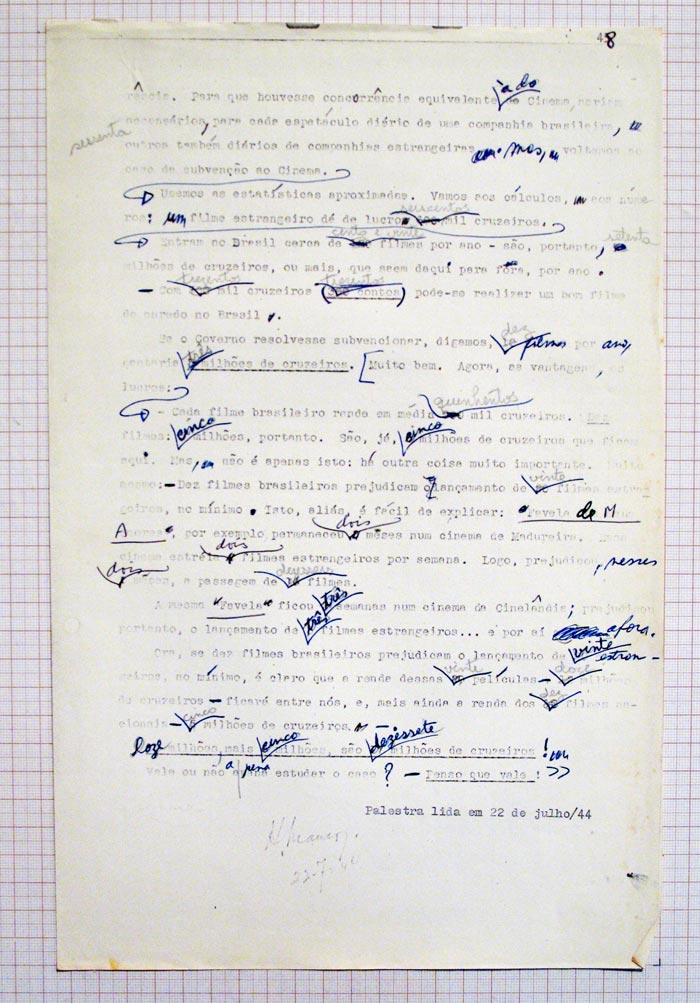 8
rência. Para que houvesse concorrência equivalente à do Cinema, seriam
necessários, para cada espetáculo diário de uma companhia brasileira,
sessenta
outros também diários de companhias estrangeiras. Mas, voltamos ao
caso da subvenção ao Cinema.
Usemos as estatísticas aproximadas. Vamos aos cálculos, aos núme-
seiscentos
ros: um filme estrangeiro dá de lucro mil cruzeiros.
cento e vinte
Entram no Brasil cerca de filmes por ano - são, portanto, setenta
milhões de cruzeiros, ou mais, que saem daqui para fora, por ano.
trezentos trezentos
- Com mil cruzeiros (300 contos) pode-se realizar um bom filme
de enredo no Brasil.
dez
Se o Governo resolvesse subvencionar, digamos, filmes por ano,
gastaria três milhões de cruzeiros. [Muito bem. Agora, as vantagens, os
lucros:
quinhentos
- Cada filme brasileiro rende em média mil cruzeiros. Dez
filmes: cinco milhões, portanto. São, já, cinco milhões de cruzeiros que ficam
aqui. Mas, não é apenas isto: há outra coisa muito importante. Muito
vinte
mesmo: - Dez filmes brasileiros prejudicam o lançamento de filmes estran-
geiros, no mínimo. Isto, aliás, é fácil de explicar: "Favela de M
A", por exemplo permaneceu dois meses num cinema de Madureira. Esse
cinema estréia dois filmes estrangeiros por semana. Logo, prejudicou, nesses
dois meses, a passagem de dezesseis filmes.
A mesma "Favela" ficou três semanas num cinema da Cinelândia; prejudicou
portanto, o lançamento de três filmes estrangeiros... e por aí afora.
Ora, se dez filmes brasileiros prejudicam o lançamento de vinte estran-
vinte doze
geiros, no mínimo, é claro que a renda dessas películas - milhões
dez
de cruzeiros - ficará entre nós, e, mais ainda a renda dos filmes na-
cinco
cionais - milhões de cruzeiros.
Doze milhões, mais cinco milhões, são dezessete milhões de cruzeiros!
Vale ou não a pena estudar o caso? - Penso que vale! >>
Palestra lida em 22 de julho/44